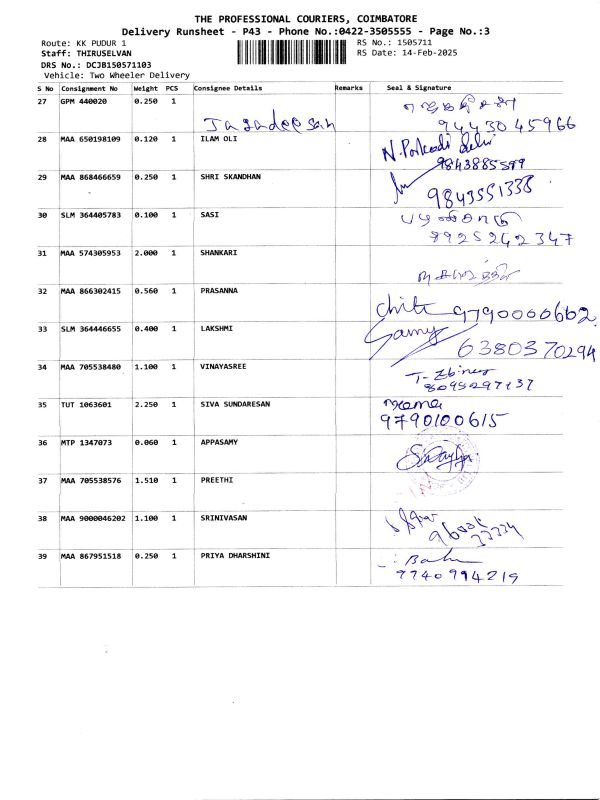 THE PROFESSIONAL COURIERS, COIMBATORE
Delivery Runsheet - P43 - Phone No.:0422-3505555 - Page No.:3
Route: KK PUDUR 1 RS No.: 1505711
Staff: THIRUSELVAN RS Date: 14-Feb-2025
DRS No.: DCJB150571103
Vehicle: Two Wheeler Delivery
S No Consignment No Weight PCS Consignee Details Remarks Seal & Signature
27 GPM 440020 0.250 1
Jagadeesan 9443045966
28 MAA 650198109 0.120 1 ILAM OLI
9843885599
29 MAA 868466659 0.250 1 SHRI SKANDHAN 9843551338
30 SLM 364405783 0.100 1 SASI
8925242347
31 MAA 574305953 2.000 1 SHANKARI
32 MAA 866302415 0.560 1 PRASANNA
9790000602
33 SLM 364446655 0.400 1 LAKSHMI Samy
6380370294
34 MAA 705538480 1.100 1 VINAYASREE
35 TUT 1063601 2.250 1 SIVA SUNDARESAN
9790100615
36 MTP 1347073 0.060 1 APPASAMY
37 MAA 705538576 1.510 1 PREETHI
38 MAA 9000046202 1.100 1 SRINIVASAN
39 MAA 867951518 0.250 1 PRIYA DHARSHINI
9740994219